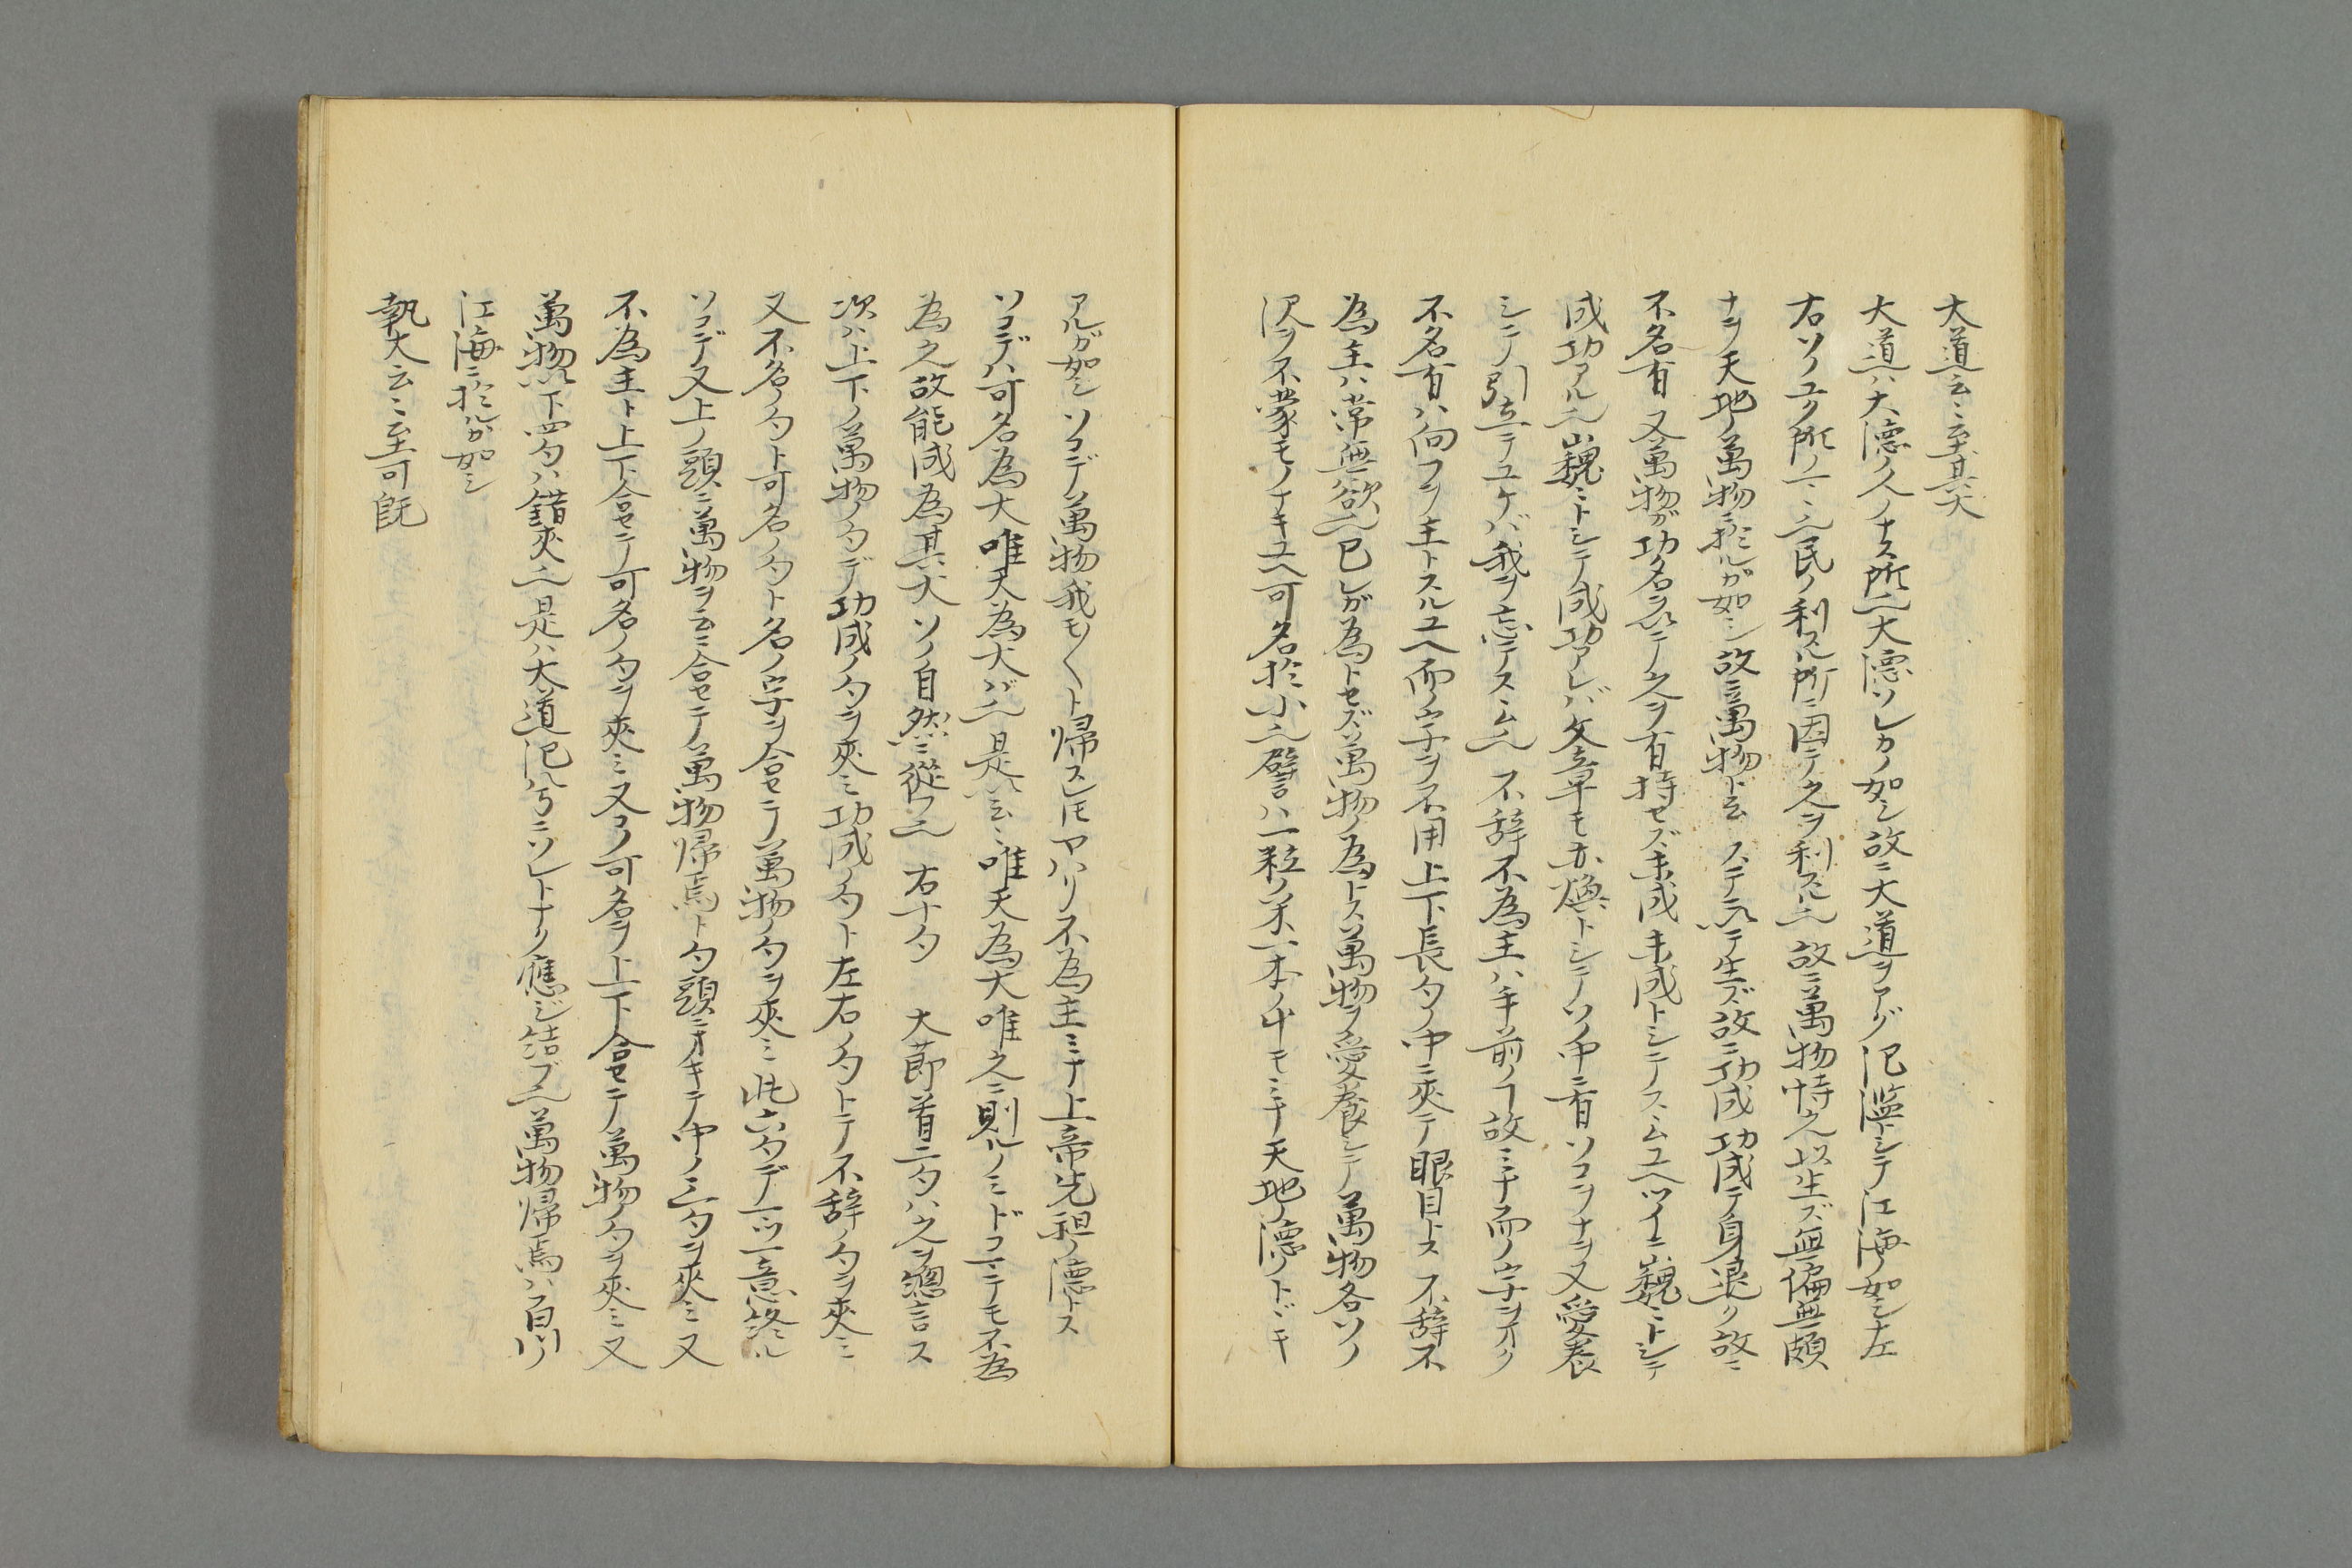 大道云々至其大
大道ハ大德ノ人ノナス所也大德ソレカノ如シ故ニ大道ヲアグ氾濫トシテ江海ノ如シ左
右ソノユク所ノマヽ也民ノ利スル所ニ因テ之ヲ利スル也故ニ萬物恃之以生ズ無偏無頗
ナヲ天地ノ萬物ニ於ルガ如シ故ニ萬物ト云ステヽ生ズ故ニ功成功成テ身退ク故ニ
不名有又萬物ガ功名ヲ云テ之ヲ有持セズ未成未成トシテスヽムユヘツイニ巍々トシテ
成功アル也巍々トシテ成功アレバ文章モ亦煥トシテソノ中ニ有ソコヲナヲ又愛養
シテ引立テユケバ我ヲ忘テスヽム也不辞不為主ハ手前ノ故ミナ而ノ字ヲオク
不名有ハ向フヲ主トスルユヘ而ノ字ヲ不用上下長句ノ中ニ夾テ眼目トス不辞不
為主ハ常無欲也已レガ為トセズ萬物ノ為トス萬物ヲ愛養シテ萬物各ソノ
沢ヲ不蒙モノナキユヘ可名於小也譬ハ一粒ノ米一本ノ艸モミナ天地ノ德ノトヾキ
アルガ如シソコデ萬物我モ〱ト帰スレ𪜈ヤハリ不為主ミナ上帝先祖ノ德トス
ソコデハ可名為大唯天為大バ也是云々唯天為大唯之ニ則ルノミドコニテモ不為
為之故能成為其大ソノ自然ニ從フ也右十句大節首二句ハ之ヲ總言ス
次ハ上下ノ萬物ノ句デ功成ノ句ヲ夾ミ功成ノ句ト左右ノ句トテ不辞ノ句ヲ夾ミ
又不名ノ句ト可名ノ句ト名ノ字ヲ合セテ萬物ノ句ヲ夾ミ此六句デ一ツ一意終ル
ソコデ又上ノ頭ニ萬物ヲ云ニ合セテ萬物帰焉ト句頭ニオキテ中ノ三句ヲ夾ミ又
不為主ト上下合セテ可名ノ句ヲ夾ミ又コノ可名ヲ上下合セテ萬物ノ句ヲ夾ミ又
萬物以下四句ハ錯夾也是ハ大道氾兮ニソレトナク應ジ結ブ也萬物帰焉ハ百川ノ
江海ニ於ルガ如シ
執大云々至可既